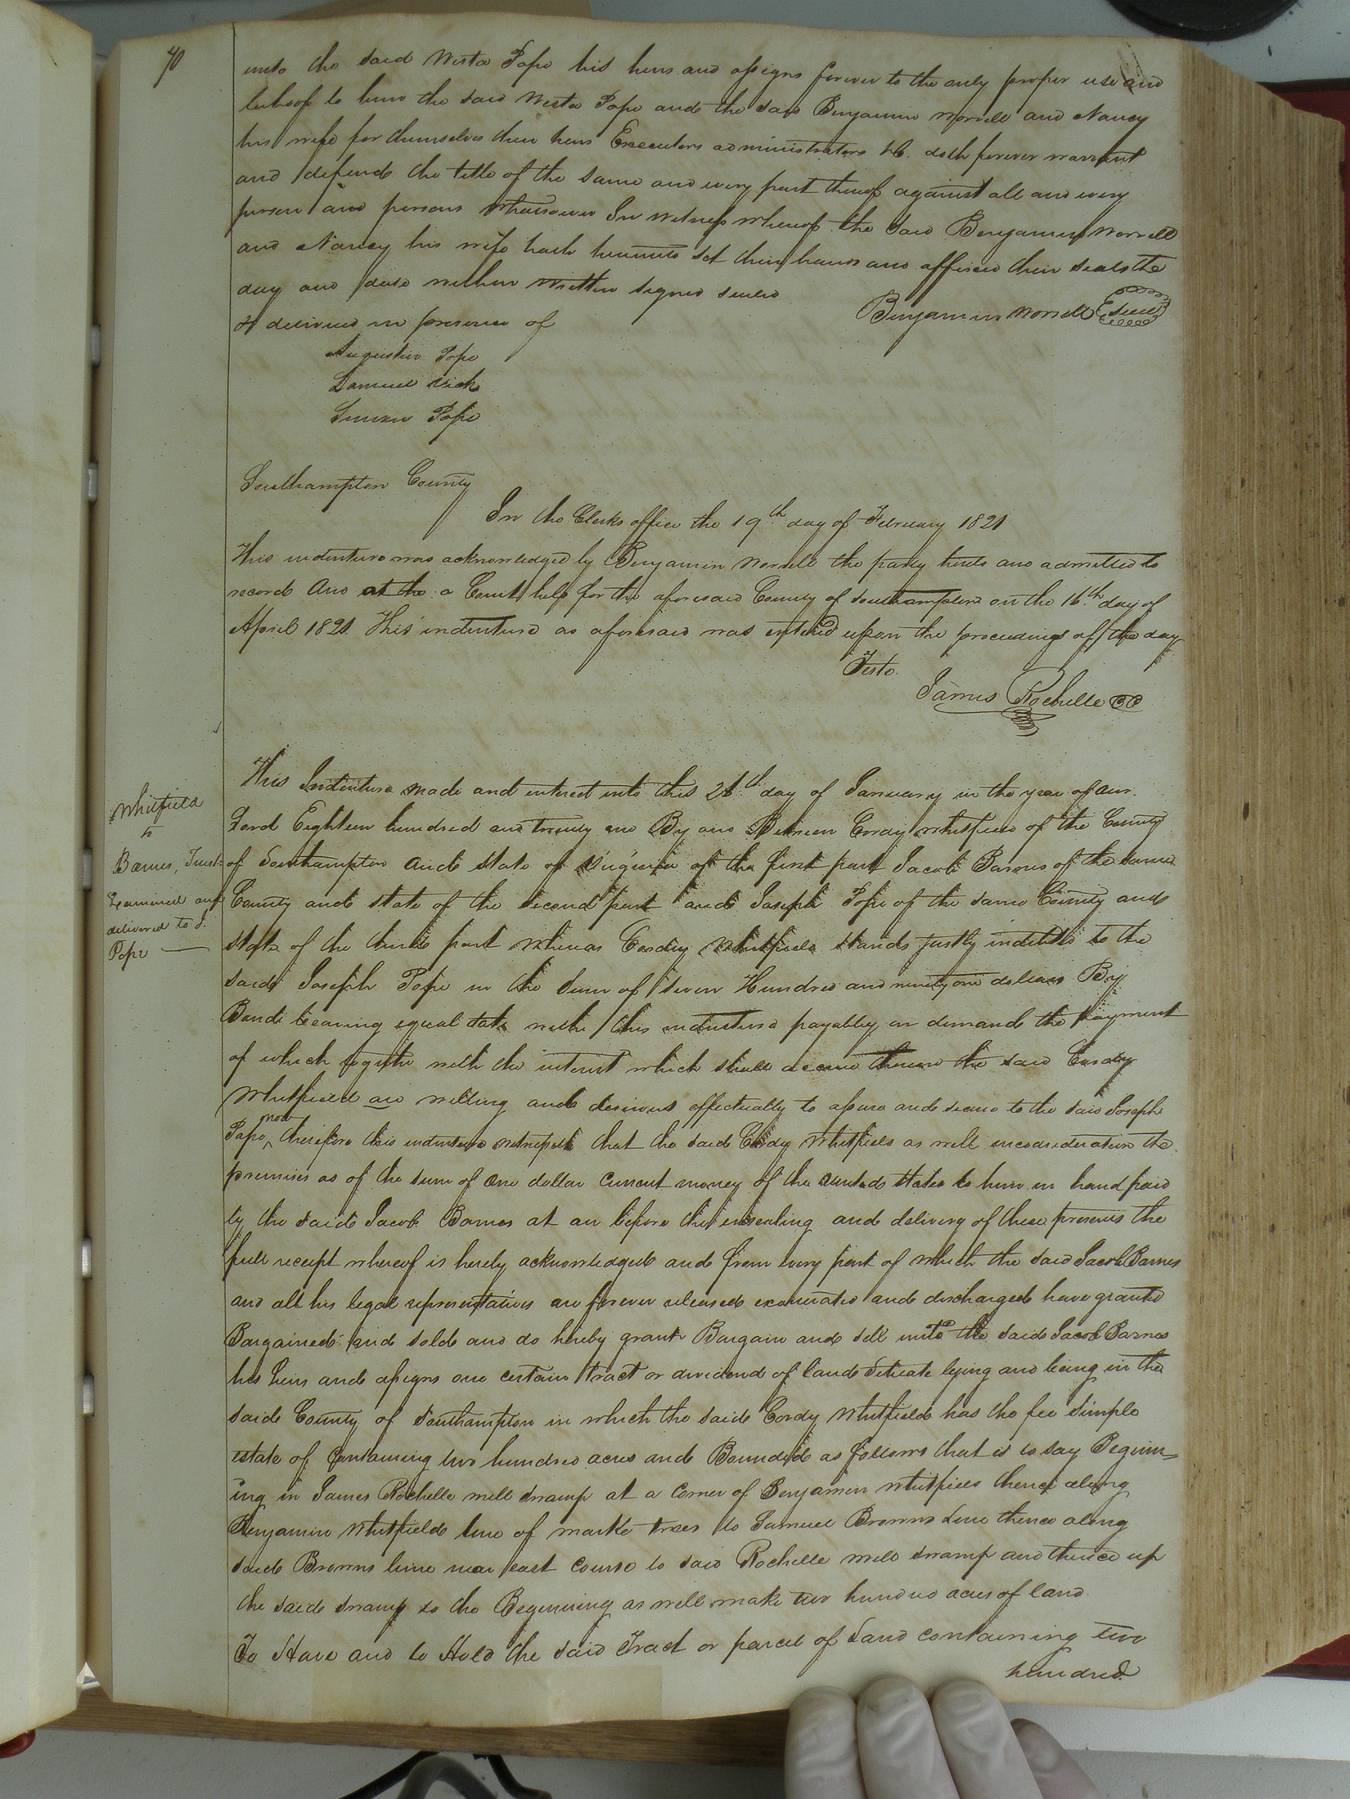 70
unto the said Wista Pope his heirs and assigns forever to the only proper use and
behoof to him the said Wista Pope and the said Benjamin Worrell and Nancy
his wife for themselves their heirs Executors administrators &c. doth forever warrant
and defend the title of the same and every part thereof against all and every
person and persons whatsoever In witness whereof the said Benjamin Worrell
and Nancy his wife hath hereunto set their hands and affixed their seals the
day and date within written signed sealed
& delivered in presence of
Benjamin Worrell Seal
Augustin Pope
Samuel
Pope
Southampton County
In the Clerks office the 19th day of February 1821
This indenture was acknowledged by Benjamin Worrell the party hereto and admitted to
record And at the a Court held for the aforesaid County of Southampton on the 16th day of
April 1821 This indenture as aforesaid was entered upon the proceedings of the day
Teste.
James Rochelle CC
Whitfield
to
Barnes, Trust
Examined and
delivered to J.
Pope
This Indenture made and enterest into this 26th day of January in the year of our
Lord Eighteen hundred and twenty one By and Between Cordy Whitfield of the County
of Southampton and state of Virginia of the first part Jacob Barnes of the same
County and state of the second part and Joseph Pope of the same County and
State of the third part Whereas Cordy Whitfield stands justly indebted to the
said Joseph Pope in the sum of seven Hundred and ninety one dollars By
Bond bearing equal date with this indenture payable on demand the payment
of which together with the interest which shall accrue thereon the said Cordy
Whitfield are willing and desirous effectually to assure and secure to the said Joseph
Pope, now therefore this indenture witnesseth that the said Cordy Whitfield as well inconsideration the
premises as of the sum of one dollar current money of the united States to him in hand paid
by the said Jacob Barnes at an before the ensealing and delivery of these presents the
full receipt whereof is hereby acknowledged and from every part of which the said Jacob Barnes
and all his legal representatives are forever released exonerated and discharged have granted
Bargained and sold and do hereby grant Bargain and sell unto the said Jacob Barnes
his heirs and assigns one certain tract or dividend of land Situate lying and being in the
said County of Southampton in which the said Cordy Whitfield has the fee Simple
estate of Containing two hundred acres and Bounded as follows that is to say Beginn=
ing in James Rochelle mill swamp at a Corner of Benjamin Whitfield thence along
Benjamin Whitfields line of marke trees to Samuel Browns Line thence along
said Browns line near east Course to said Rochelle mill swamp and thence up
the said swamp to the Beginning as will make two hundred acres of land.
To Have and to Hold the said Tract or parcel of Land containing two
hundred